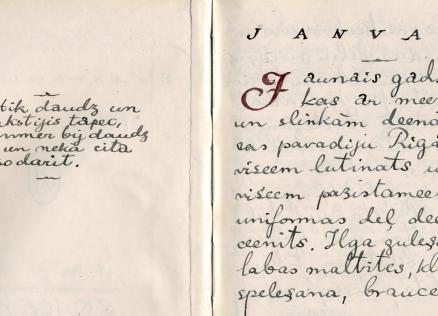 tik daudz un
kstijis tāpēc,
mmēr bij daudz
un neka cita
so darit.
JANVA
Jaunais gads
kas ar meer
un slinkām deenā
eas pavadiju Rīgā
viseem lutinats u
viseem pazistamee
uniformas deļ dee
ceenits. Ilga guleša
labas maltites, kl
spelešana, brauce